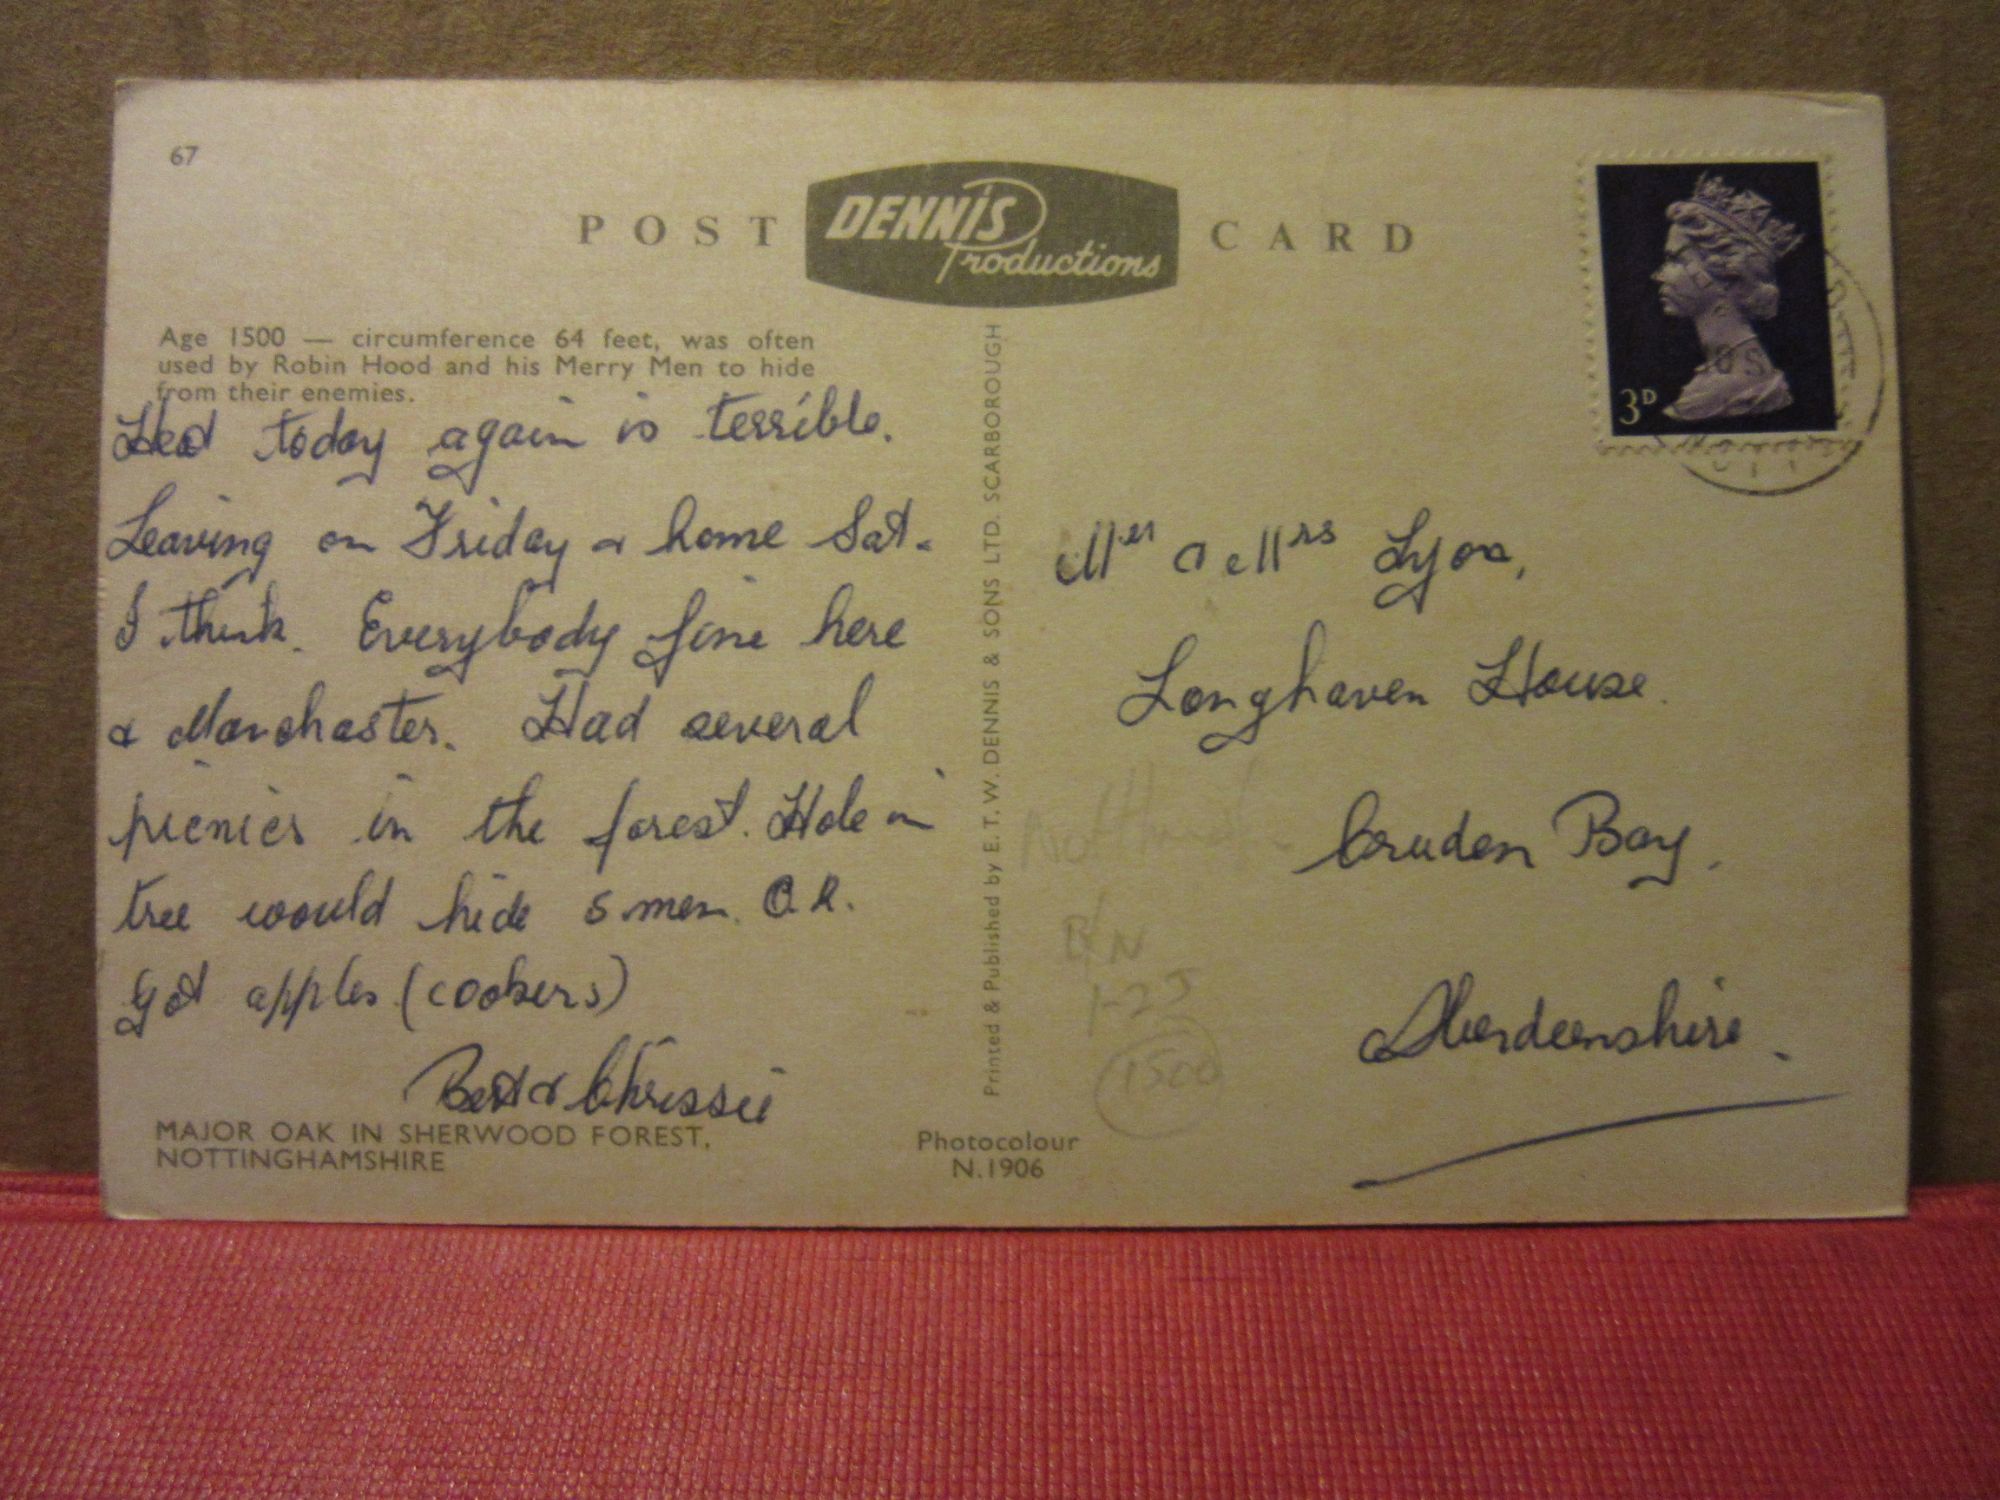 67
POST DENNIS Productions CARD
3D
Age 1500 — circumference 64 feet, was often
used by Robin Hood and his Merry Men to hide
from their enemies.
today again is terrible.
Leaving on Friday & home Sat.
I think. Everybody fine here
& Manchester. Had several
picnics in the forest. Hole in
tree would hide 5 men. O.K.
Got apples (cookers)
Bert & Chrissie
MAJOR OAK IN SHERWOOD FOREST,
NOTTINGHAMSHIRE
Printed & Published by E. T. W. DENNIS & SONS LTD. SCARBOROUGH
Photocolour
N.1906
Mr & Mrs Lyon,
Longhaven House.
Cruden Bay.
Aberdeenshire.
1500